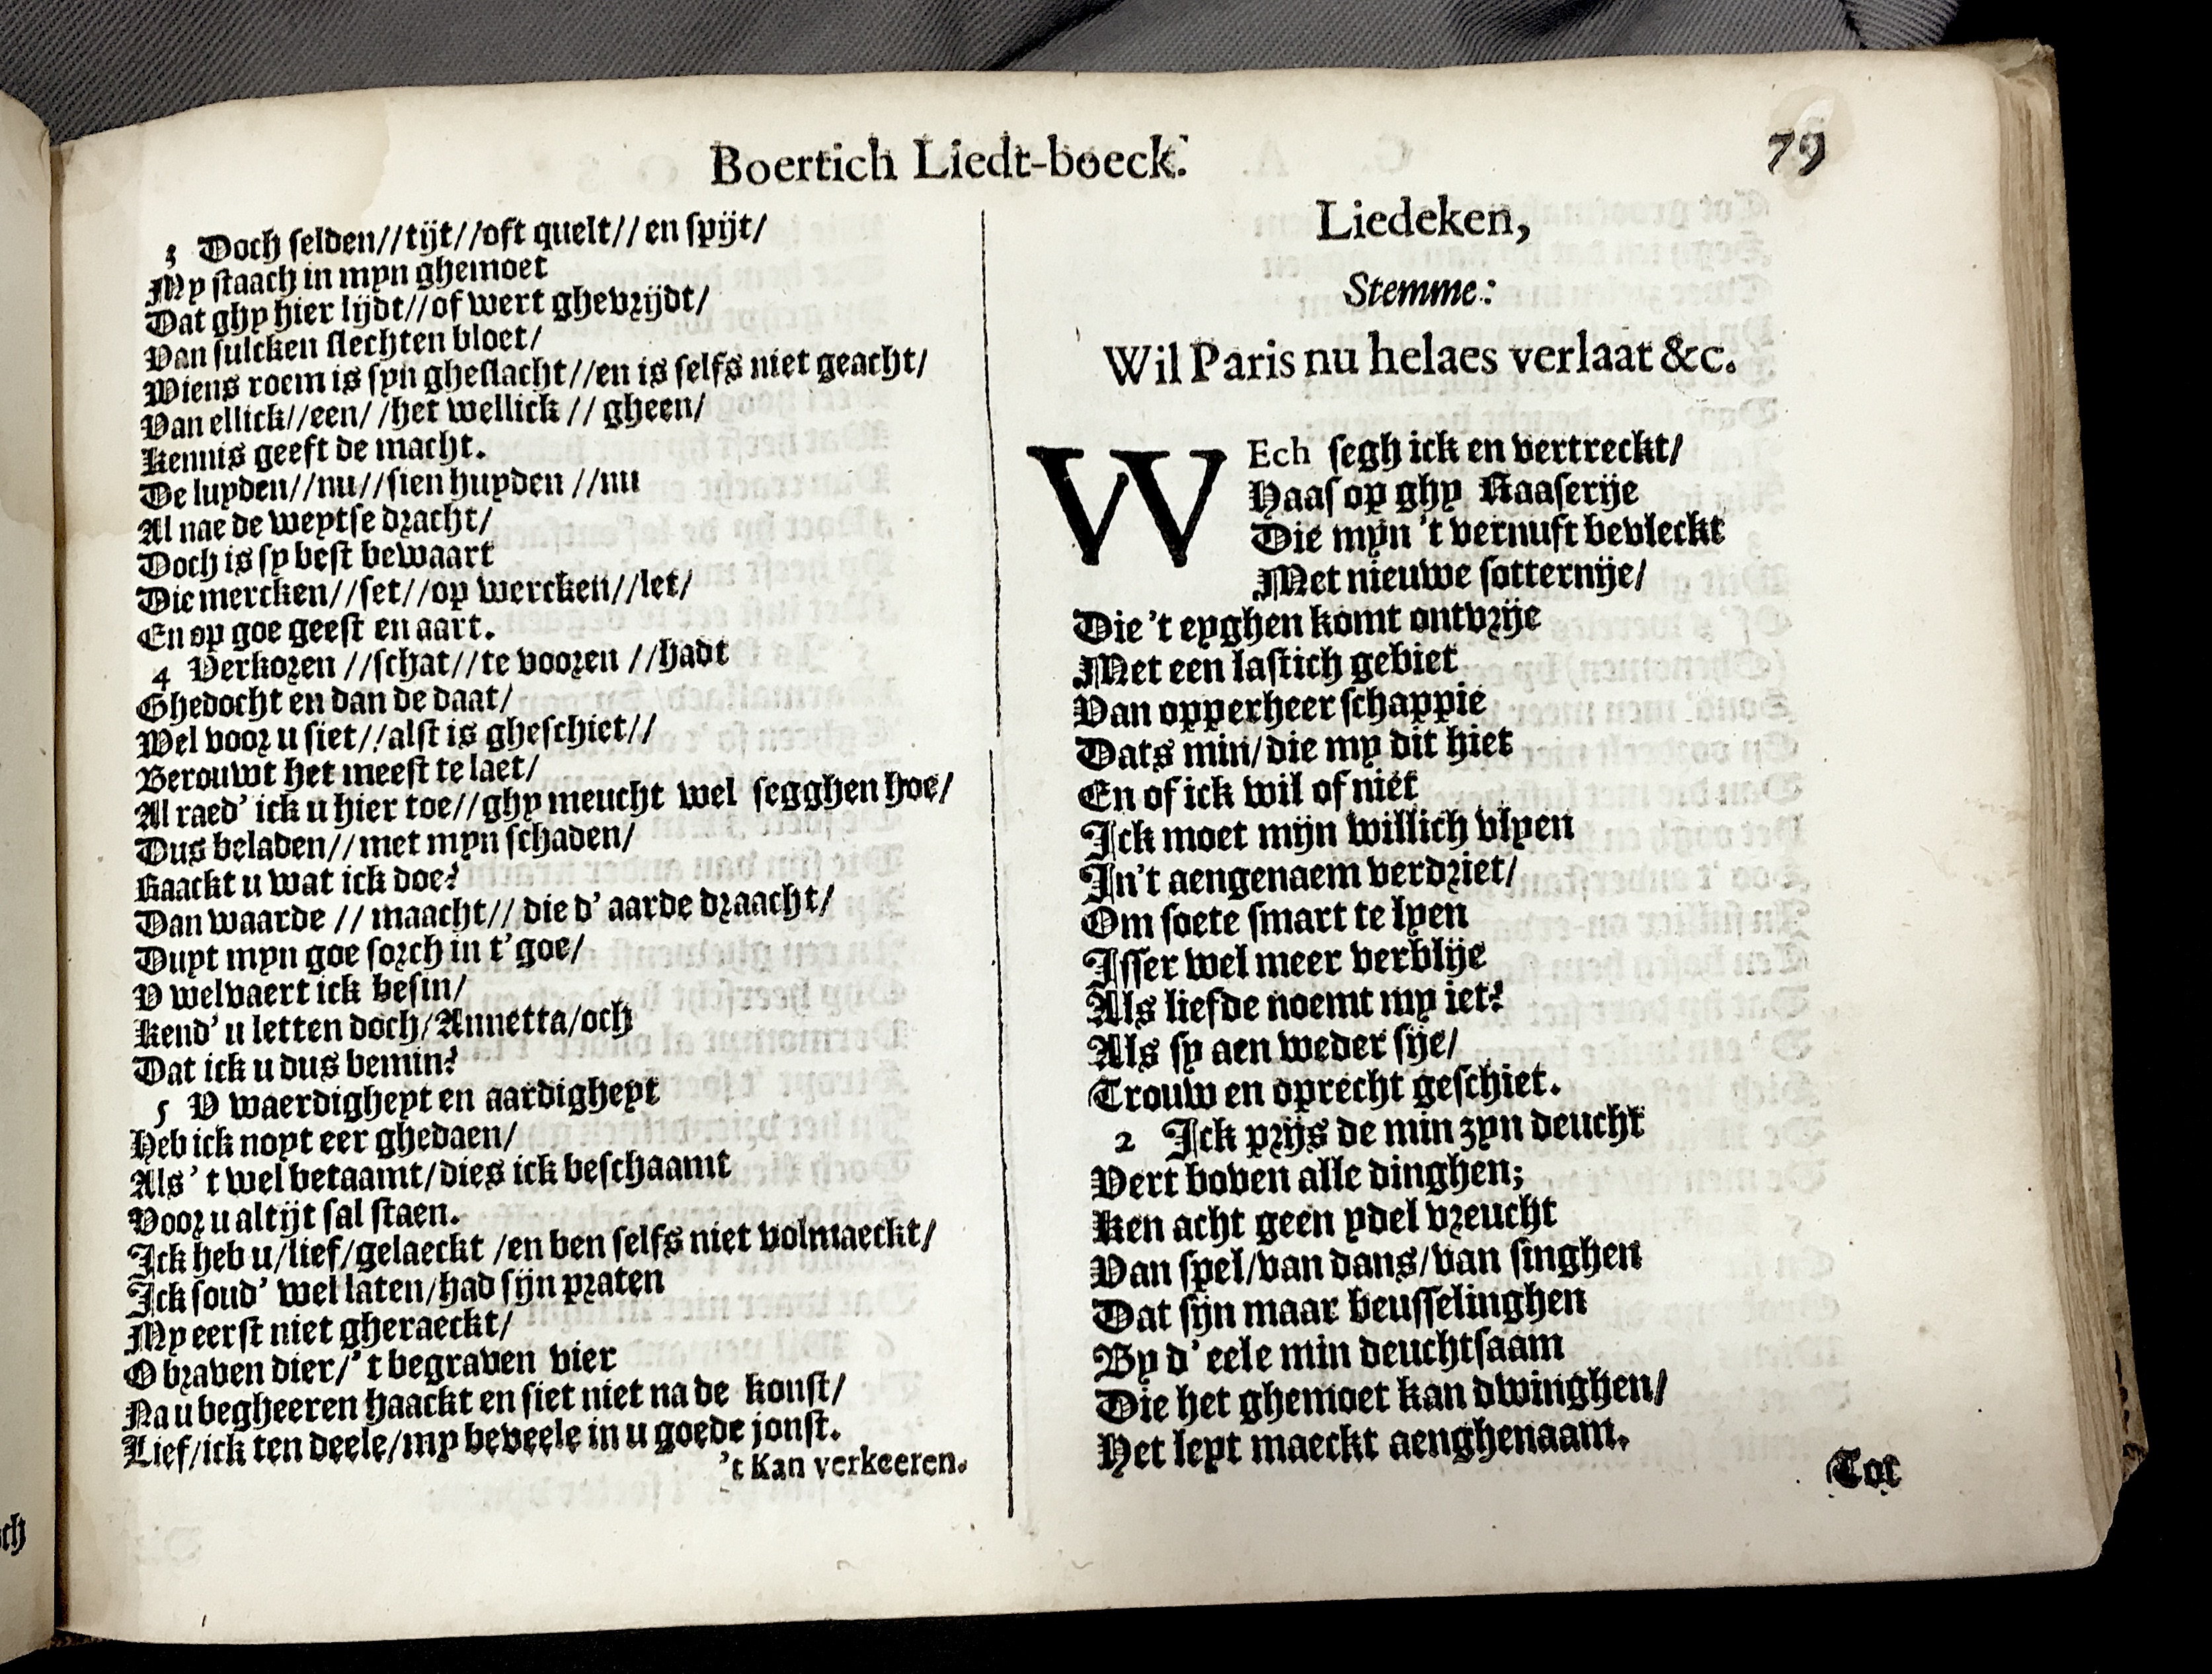 Boertich Liedt-boeck.
79
3 Doch selden//tijt//oft quelt//en spijt/
My staach in myn ghemoet
Dat ghy hier lijdt//of wert ghevrijdt/
Van sulcken slechten bloet/
Wiens roem is syn gheslacht//en is selfs niet geacht/
Van ellick//een//het wellick//gheen/
Kennis geeft de macht.
De luyden//nu//sien huyden//nu
Al nae de weytse dracht/
Doch is sy best bewaart
Die mercken//set//op wercken//let/
En op goe geest en aart.
4 Verkoren//schat//te vooren//hadt
Ghedocht en dan de daat/
Wel voor u siet//alst is gheschiet//
Berouwt het meest te laet/
Al raed' ick u hier toe//ghy meucht wel segghen hoe/
Dus beladen//met myn schaden/
Raackt u wat ick doe?
Dan waarde//maacht//die d'aarde draacht/
Duyt myn goe sorch in t'goe/
V welvaert ick besin/
Kend' u letten doch/Annetta/och
Dat ick u dus bemin?
5 V waerdigheyt en aardigheyt
Heb ick noyt eer ghedaen/
Als 't wel betaamt/dies ick beschaamt
Voor u altijt sal staen.
Ick heb u/lief/gelaeckt/en ben selfs niet volmaeckt/
Ick soud' wel laten/had sijn praten
My eerst niet gheraeckt/
O braven dier/'t begraven vier
Na u begheeren haackt en siet niet na de konst/
Lief/ick ten deele/my beveele in u goede jonst.
't Kan verkeeren.
Liedeken,
Stemme:
Wil Paris nu helaes verlaat &c.
WEch segh ick en vertreckt/
Haas op ghy Raaserije
Die myn 't vernuft bevleckt
Met nieuwe sotternije/
Die 't eyghen komt ontvrije
Met een lastich gebiet
Van opperheerschappie
Dats min/die my dit hiet
En of ick wil of niet
Ick moet mijn willich vlyen
In't aengenaem verdriet/
Om soete smart te lyen
Isser wel meer verblije
Als liefde noemt my iet?
Als sy aen weder sije/
Trouw en oprecht geschiet.
2 Ick prijs de min zyn deucht
Vert boven alle dinghen;
Ken acht geen ydel vreucht
Van spel/van dans/van singhen
Dat sijn maar beusselinghen
By d'eele min deuchtsaam
Die het ghemoet kan dwinghen/
Het leyt maeckt aenghenaam.
Tot